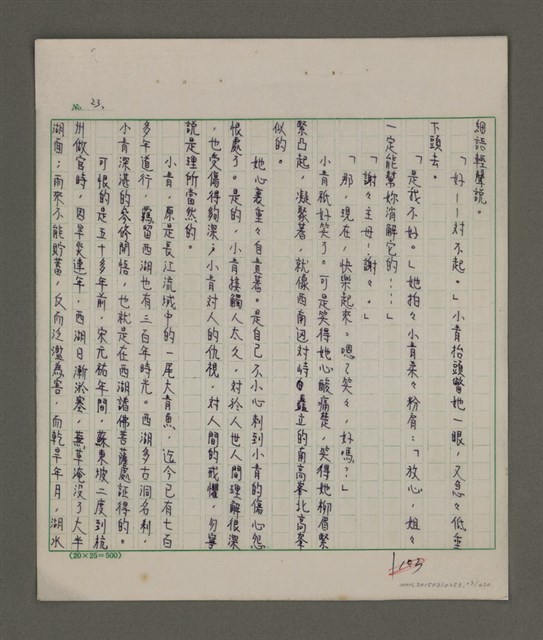 No. 23.
細語輕聲說。
「好——對不起。」小青抬頭瞥她一眼，又急々低垂
下頭去。
「是我不好。」她拍々小青柔々粉肩：「放心，姐々
一定能幫妳消解它的……」
「謝々主母！謝々。」
「那，現在，快樂起來。嗯？笑々，好嗎？」
小青祇好笑了。可是笑得她心酸痛楚，笑得她柳眉緊
緊凸起，凝聚著，就像西南迎對峙矗立的南高峯北高峯
似的。
她心裏重々自責著。是自己不小心刺到小青的傷心怨
恨處了。是的，小青接觸人太久，對於人世人間理解很深
，也受傷得夠深；小青對人的仇視，對人間的戒懼，毋寧
說是理所當然的。
小青，原是長江流域中的一尾大青魚，迄今已有七百
多年道行，羈留西湖也有三百年時光。西湖多古洞名刹，
小青深湛的參修開悟，也就是在西湖諸佛菩薩處証得的。
可恨的是五十多年前，宋元祐年間，蘇東坡二度到杭
州做官時，因旱災連年，西湖日漸淤塞，葑草淹沒了大半
湖面；雨來不能貯蓄，反而泛濫為害，而乾旱年月，湖水
(20×25=500)
153